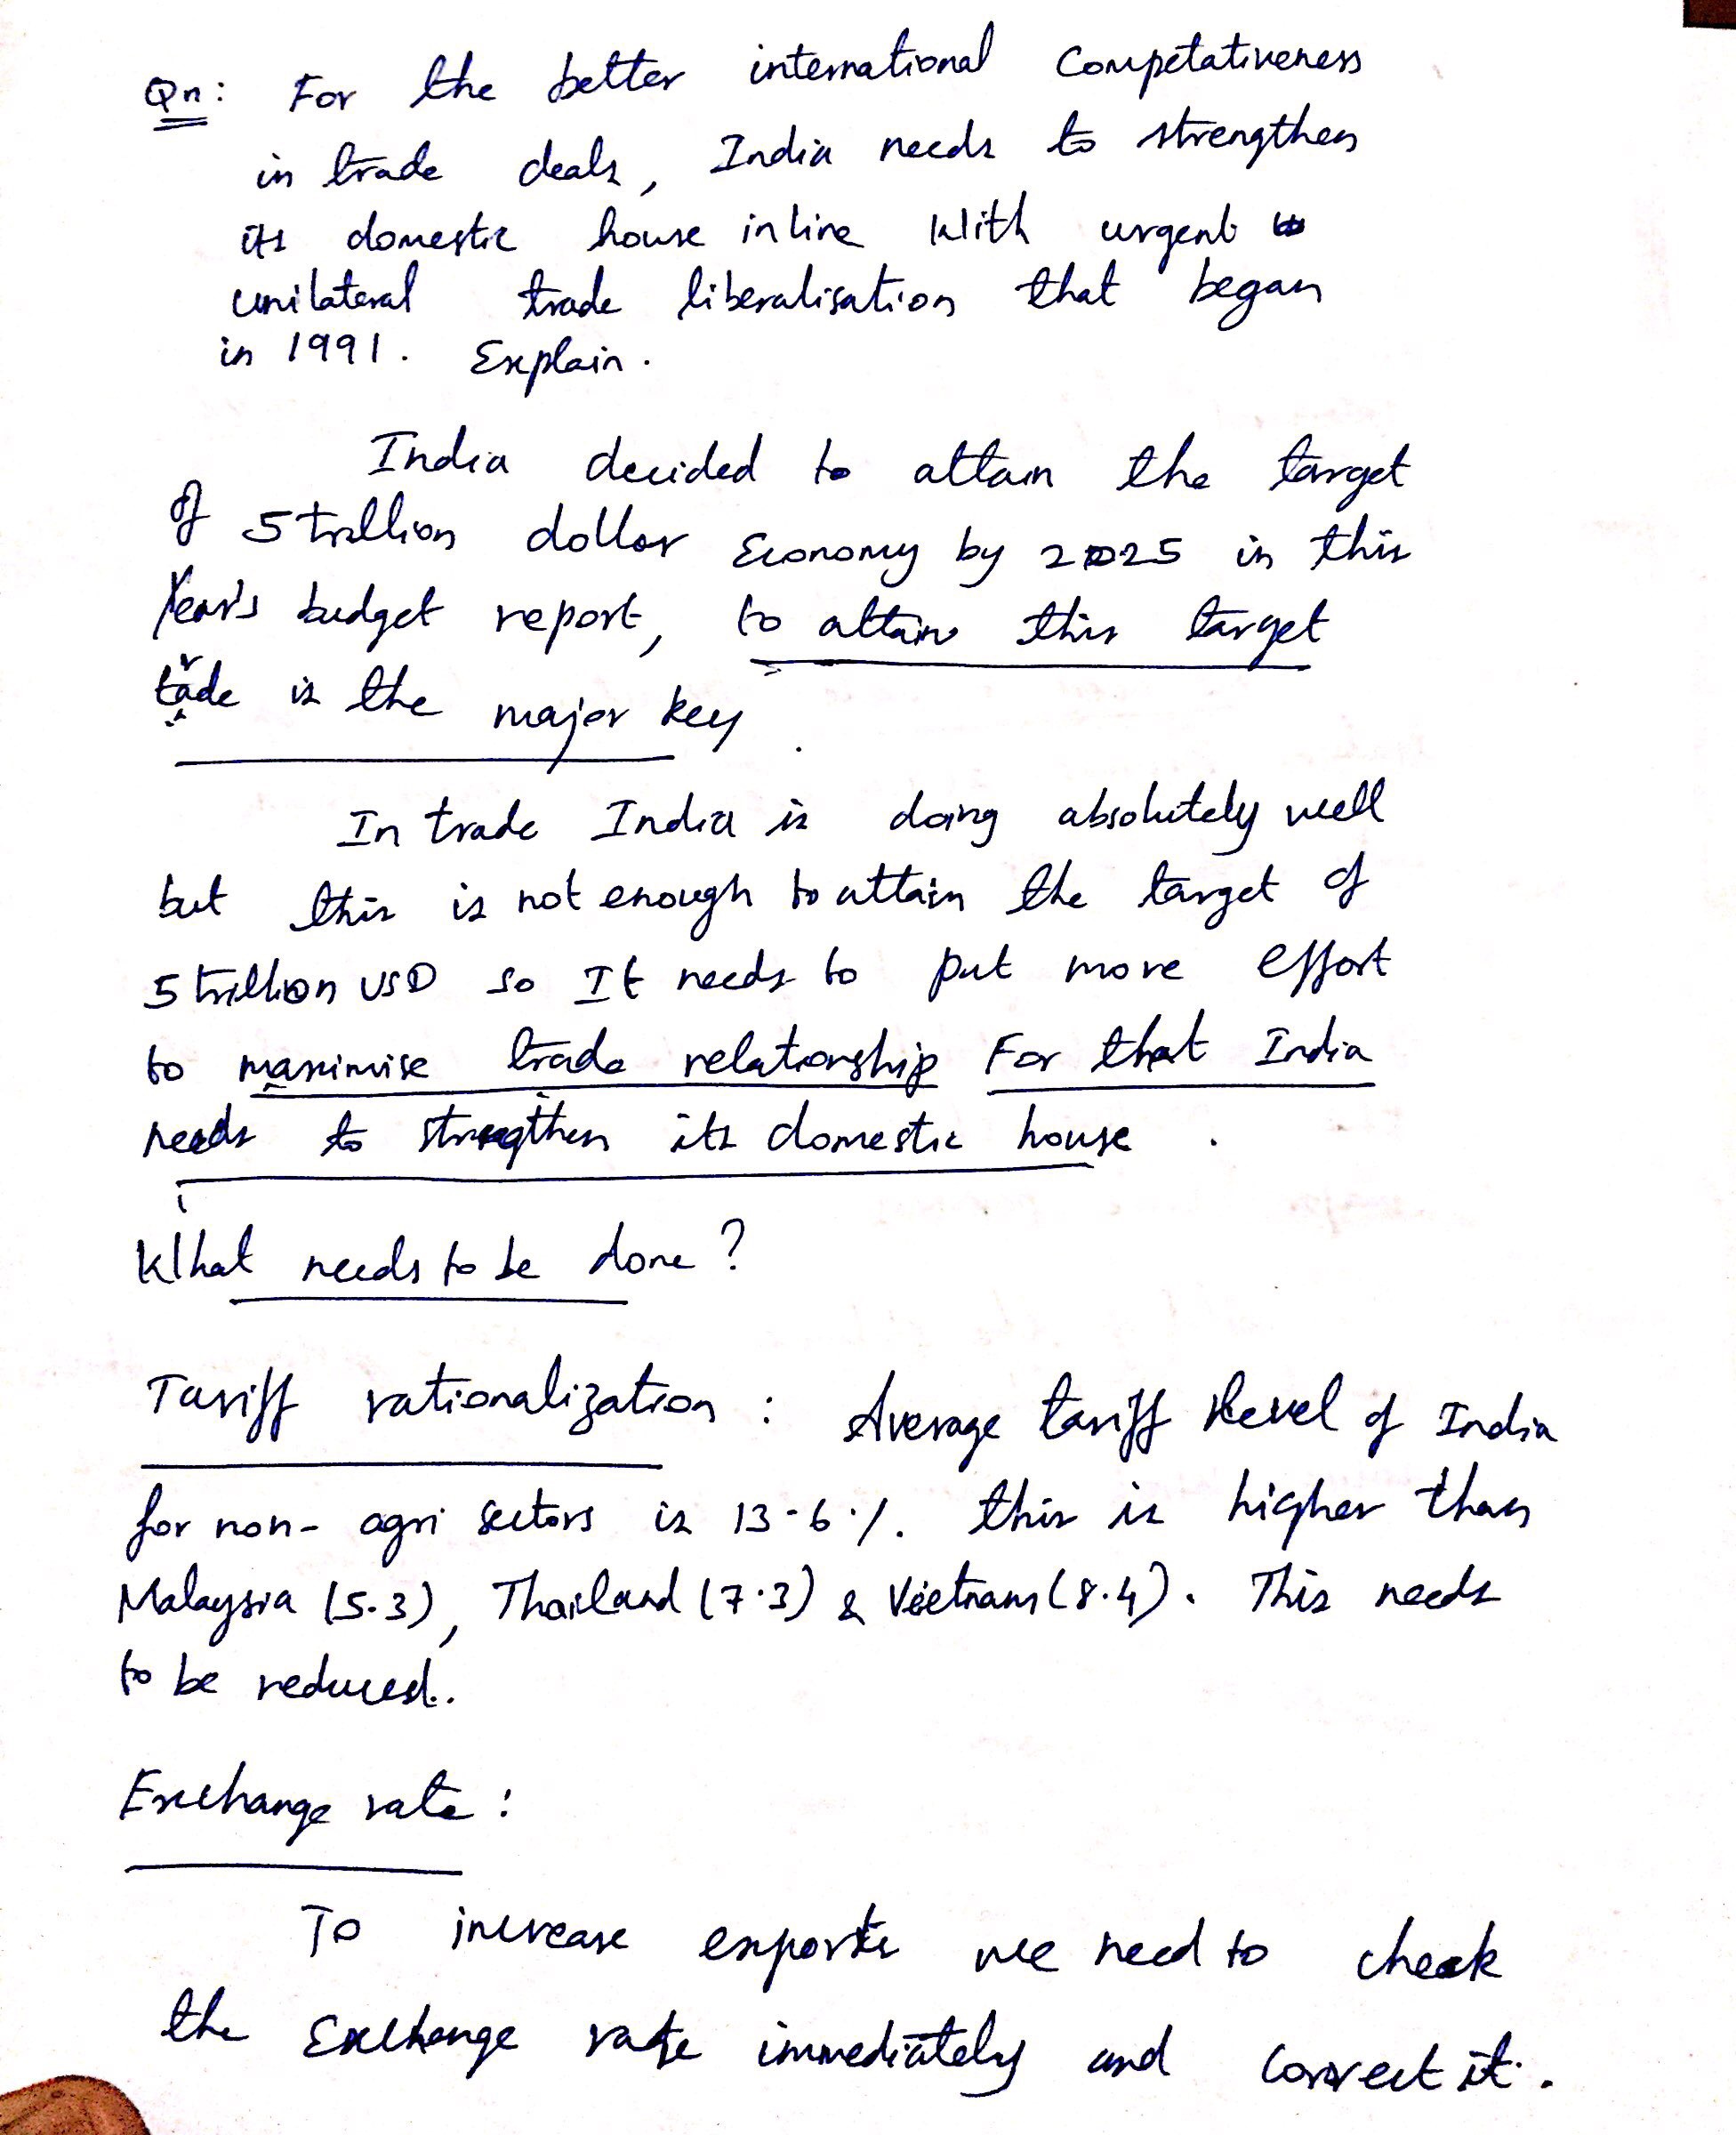 Qn: For the better international Competativeness
in trade deals, India needs to strengthen
its domestic house inline With urgent
unilateral trade liberalisation that began
in 1991. Explain.
India decided to attain the target
of 5 trillion dollar Economy by 2025 in this
Year's budget report, to attain this target
trade is the major key.
In trade India is doing absolutely well
but this is not enough to attain the target of
5 trillion USD so It needs to put more effort
to maximise trade relationship For that India
needs to strengthen its domestic house.
What needs to be done?
Tariff rationalization: Average tariff level of India
for non-agri sectors is 13.6%. this is higher than
Malaysia (5.3), Thailand (7.3) & Vietnam (8.4). This needs
to be reduced.
Exchange rate:
To increase exports we need to check
the Exchange rate immediately and correct it.